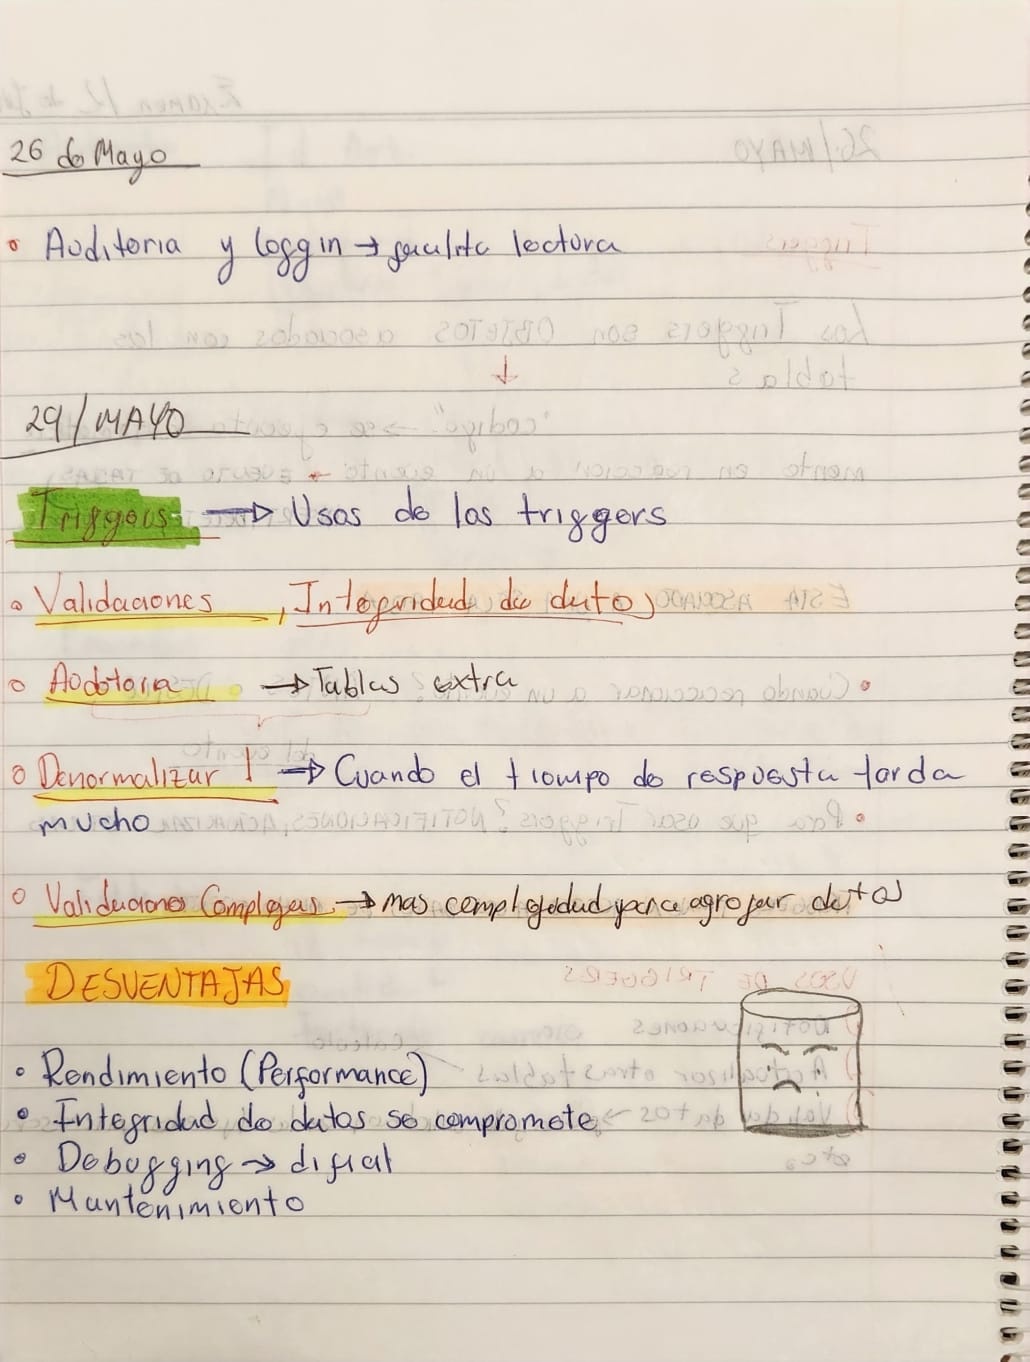 26 de Mayo
• Auditoria y loggin → facilita lectura
29/MAYO
Triggers → Usos de los triggers
• Validaciones, Integridad de datos
• Auditoria → Tablas extra
• Denormalizar → Cuando el tiempo de respuesta tarda
mucho
• Validaciones Complejas → mas complejidad para agregar datos
DESVENTAJAS
• Rendimiento (Performance)
• Integridad de datos se compromete
• Debugging → dificil
• Mantenimiento